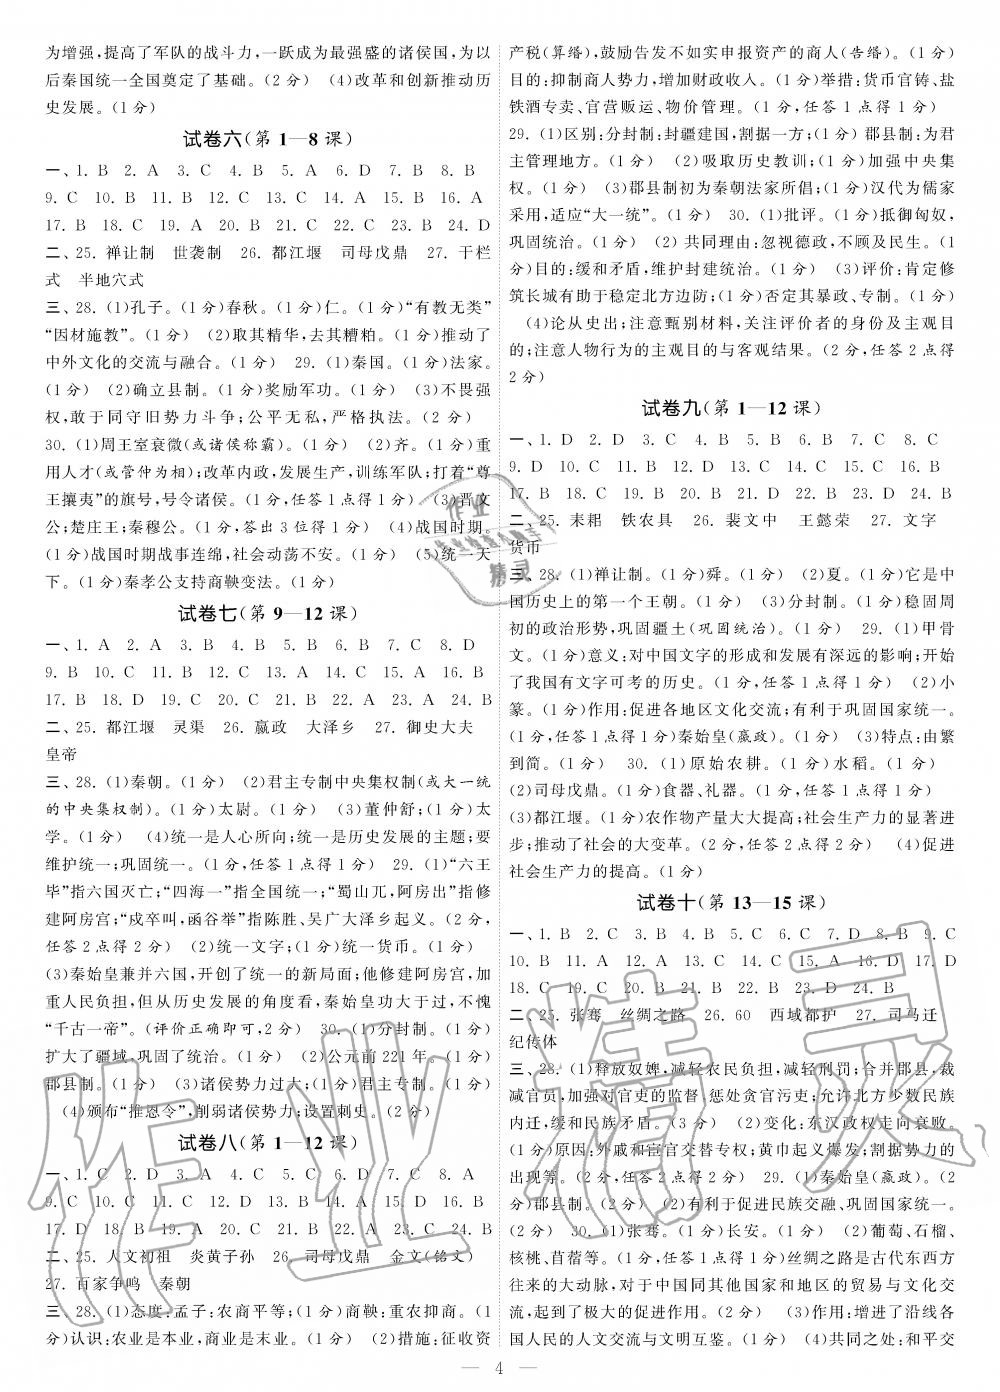 为增强,提高了军队的战斗力,一跃成为最强盛的诸侯国,为以
后秦国统一全国奠定了基础。(2分) (4)改革和创新推动历
史发展。(1分)
试卷六(第1—8课)
一、1. B 2. A 3. C 4. B 5. A 6. D 7. B 8. B
9. C 10. B 11. B 12. C 13. C 14. A 15. B 16. A
17. B 18. C 19. A 20. D 21. C 22. C 23. B 24. D
二、25. 禅让制 世袭制 26. 都江堰 司母戊鼎 27. 干栏
式 半地穴式
三、28. (1)孔子。(1分)春秋。(1分)仁。(1分)“有教无类”
“因材施教”。(1分) (2)取其精华,去其糟粕。(1分)推动了
中外文化的交流与融合。(1分) 29. (1)秦国。(1分)法家。
(1分) (2)确立县制。(1分)奖励军功。(1分) (3)不畏强
权,敢于同守旧势力斗争;公平无私,严格执法。(2分)
30. (1)周王室衰微(或诸侯称霸)。(1分) (2)齐。(1分)重
用人才(或管仲为相);改革内政,发展生产,训练军队;打着“尊
王攘夷”的旗号,号令诸侯。(1分,任答1点得1分) (3)晋文
公;楚庄王;秦穆公。(1分,答出3位得1分) (4)战国时期。
(1分)战国时期战事连绵,社会动荡不安。(1分) (5)统一天
下。(1分)秦孝公支持商鞅变法。(1分)
试卷七(第9—12课)
一、1. A 2. A 3. B 4. B 5. B 6. B 7. C 8. D
9. B 10. B 11. A 12. C 13. A 14. C 15. A 16. B
17. B 18. D 19. C 20. C 21. B 22. A 23. A 24. B
二、25. 都江堰 灵渠 26. 嬴政 大泽乡 27. 御史大夫
皇帝
三、28. (1)秦朝。(1分) (2)君主专制中央集权制(或大一统
的中央集权制)。(1分)太尉。(1分) (3)董仲舒;(1分)太
学。(1分) (4)统一是人心所向;统一是历史发展的主题;要
维护统一;巩固统一。(1分,任答1点得1分) 29. (1)“六王
毕”指六国灭亡;“四海一”指全国统一;“蜀山兀,阿房出”指修
建阿房宫;“戍卒叫,函谷举”指陈胜、吴广大泽乡起义。(2分,
任答2点得2分) (2)统一文字;(1分)统一货币。(1分)
(3)秦始皇兼并六国,开创了统一的新局面;他修建阿房宫,加
重人民负担,但从历史发展的角度看,秦始皇功大于过,不愧
“千古一帝”。(评价正确即可,2分) 30. (1)分封制。(1分)
扩大了疆域,巩固了统治。(1分) (2)公元前221年。(1分)
郡县制。(1分) (3)诸侯势力过大;(1分)君主专制。(1分)
(4)颁布“推恩令”,削弱诸侯势力;设置刺史。(2分)
试卷八(第1—12课)
一、1. C 2. D 3. A 4. C 5. C 6. D 7. C 8. A
9. C 10. C 11. C 12. D 13. B 14. A 15. D 16. B
17. D 18. B 19. A 20. D 21. C 22. A 23. C 24. B
二、25. 人文初祖 炎黄子孙 26. 司母戊鼎 金文(铭文)
27. 百家争鸣 秦朝
三、28. (1)态度:孟子:农商平等;(1分)商鞅:重农抑商。(1
分)认识:农业是本业,商业是末业。(1分) (2)措施:征收资
产税(算缗),鼓励告发不如实申报资产的商人(告缗)。(1分)
目的:抑制商人势力,增加财政收入。(1分)举措:货币官铸、盐
铁酒专卖、官营贩运、物价管理。(1分,任答1点得1分)
29. (1)区别:分封制:封疆建国,割据一方;(1分)郡县制:为君
主管理地方。(1分) (2)吸取历史教训;(1分)加强中央集
权。(1分) (3)郡县制初为秦朝法家所倡;(1分)汉代为儒家
采用,适应“大一统”。(1分) 30. (1)批评。(1分)抵御匈奴,
巩固统治。(1分) (2)共同理由:忽视德政,不顾及民生。(1
分)目的:缓和矛盾,维护封建统治。(1分) (3)评价:肯定修
筑长城有助于稳定北方边防;(1分)否定其暴政、专制。(1分)
(4)论从史出;注意甄别材料,关注评价者的身份及主观目
的;注意人物行为的主观目的与客观结果。(2分,任答2点得
2分)
试卷九(第1—12课)
一、1. D 2. D 3. C 4. B 5. B 6. B 7. C 8. C
9. D 10. C 11. B 12. C 13. A 14. C 15. C 16. B
17. B 18. C 19. C 20. D 21. D 22. B 23. D 24. B
二、25. 耒耜 铁农具 26. 裴文中 王懿荣 27. 文字
货币
三、28. (1)禅让制。(1分)舜。(1分) (2)夏。(1分)它是中
国历史上的第一个王朝。(1分) (3)分封制。(1分)稳固周
初的政治形势,巩固疆土(巩固统治)。(1分) 29. (1)甲骨
文。(1分)意义:对中国文字的形成和发展有深远的影响;开始
了我国有文字可考的历史。(1分) (2)小
篆。(1分)作用:促进各地区文化交流;有利于巩固国家统一。
(1分,任答1点得1分)秦始皇(嬴政)。(1分) (3)特点:由繁
到简。(1分) 30. (1)原始农耕。(1分)水稻。(1分)
(2)司母戊鼎。(1分)食器、礼器。(1分)
(3)都江堰。(1分)农作物产量大大提高;社会生产力的显著进
步;推动了社会的大变革。(2分,任答2点得2分) (4)促进
社会生产力的提高。(1分)
试卷十(第13—15课)
一、1. B 2. C 3. B 4. B 5. C 6. C 7. D 8. B 9. C
10. B 11. D 12. A 13. C 14. C 15. A 16. D 17. D
18. C 19. C 20. B 21. B 22. D 23. D 24. B
二、25. 张骞 丝绸之路 26. 60 西域都护 27. 司马迁
纪传体
三、28. (1)释放奴婢,减轻农民负担,减轻刑罚;合并郡县,裁
减官员,加强对官吏的监督,惩处贪官污吏;允许北方少数民族
内迁,缓和民族矛盾。(3分) (2)变化:东汉政权走向衰败。
(1分)原因:外戚和宦官交替专权;黄巾起义爆发;割据势力的
出现等。(1分) 29. (1)秦始皇(嬴政)。(2
分)郡县制。(1分) (2)有利于促进民族交融、巩固国家统一。
(2分) 30. (1)张骞。(1分)长安。(1分) (2)葡萄、石榴、
核桃、苜蓿等。(1分)丝绸之路是古代东西方
往来的大动脉,对于中国同其他国家和地区的贸易与文化交
流,起到了极大的促进作用。(2分) (3)作用:增进了沿线各
国人民的人文交流与文明互鉴。(1分) (4)共同之处:和平交
— 4 —
作业精灵